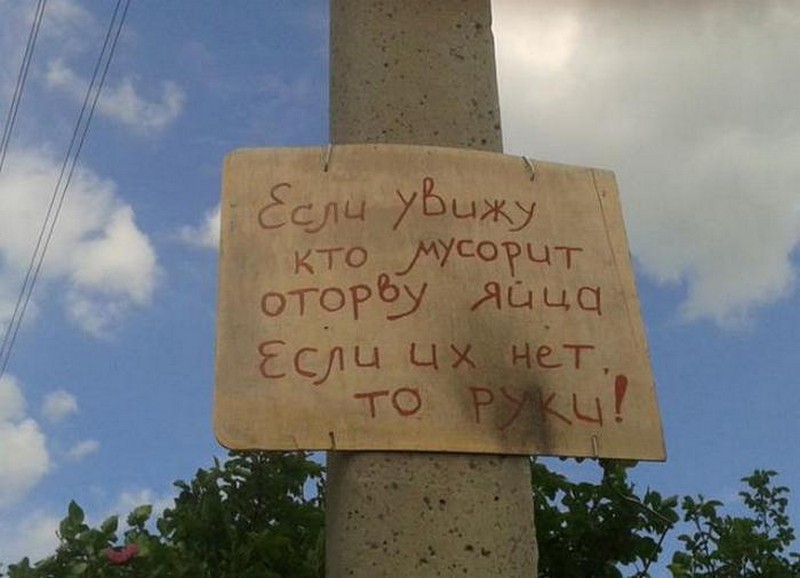 Если увижу
кто мусорит
оторву яйца
Если их нет,
то руки!